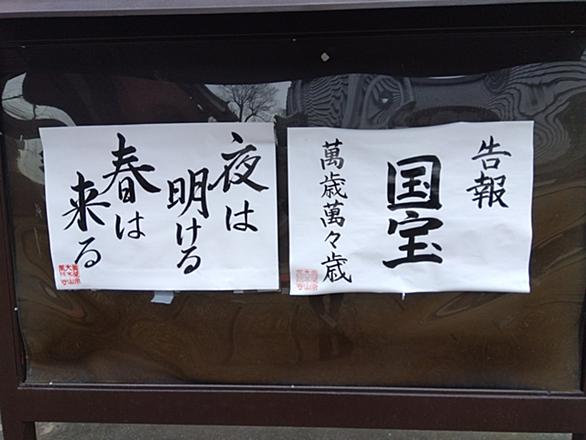 告報
国宝
萬歳萬々歳
夜は
明ける
春は
来る